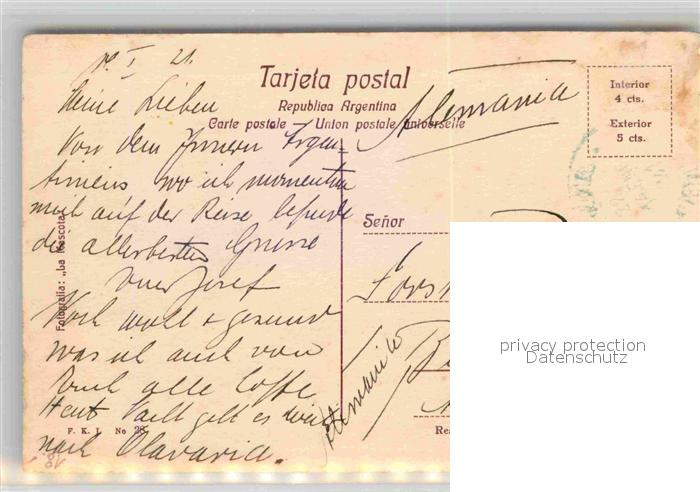 I 21.
Tarjeta postal
Republica Argentina
Carte postale — Union postale universelle
Alemania
Interior
4 cts.
Exterior
5 cts.
Meine Lieben
Von dem Innern Argen-
tiniens wo ich momentan
mich auf der Reise befinde
die allerbesten Grüsse
Euer Josef
Noch wohl + gesund
was ich auch von
Euch alle hoffe
Heut Nacht geht es weiter
nach Olavaria.
Señor
Fors
Alemania
privacy protection
Datenschutz
Fotografía: „La Mascota“
F. K. L. No 28
Re